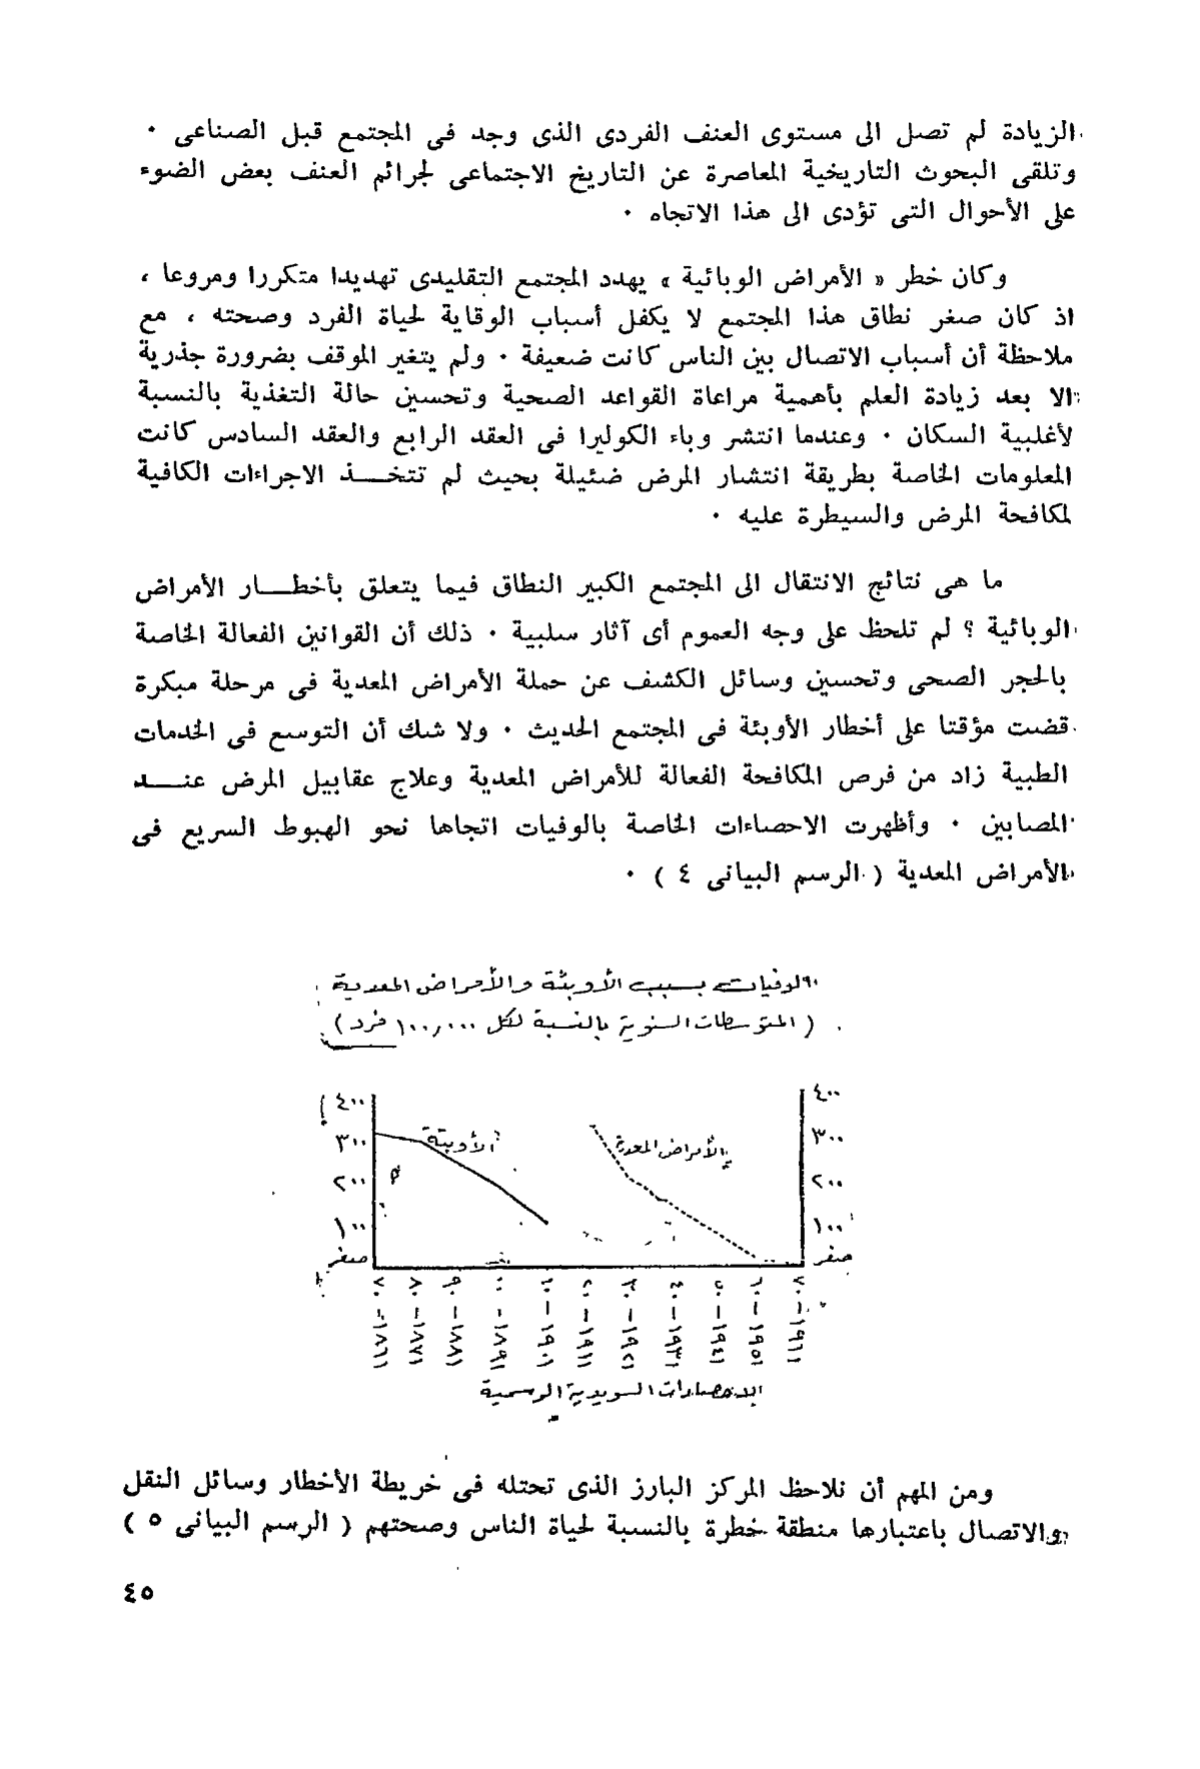 الزيادة لم تصل الى مستوى العنف الفردى الذى وجد فى المجتمع قبل الصناعى ٠
وتلقى البحوث التاريخية المعاصرة عن التاريخ الاجتماعى لجرائم العنف بعض الضوء
على الأحوال التى تؤدى الى هذا الاتجاه ٠
وكان خطر « الأمراض الوبائية » يهدد المجتمع التقليدى تهديدا متكررا ومروعا ،
اذ كان صغر نطاق هذا المجتمع لا يكفل أسباب الوقاية لحياة الفرد وصحته ، مع
ملاحظة أن أسباب الاتصال بين الناس كانت ضعيفة ٠ ولم يتغير الموقف بضرورة جذرية
الا بعد زيادة العلم بأهمية مراعاة القواعد الصحية وتحسين حالة التغذية بالنسبة
لأغلبية السكان ٠ وعندما انتشر وباء الكوليرا فى العقد الرابع والعقد السادس كانت
المعلومات الخاصة بطريقة انتشار المرض ضئيلة بحيث لم تتخـــذ الاجراءات الكافية
لمكافحة المرض والسيطرة عليه ٠
ما هى نتائج الانتقال الى المجتمع الكبير النطاق فيما يتعلق بأخطـــار الأمراض
الوبائية ؟ لم تلحظ على وجه العموم أى آثار سلبية ٠ ذلك أن القوانين الفعالة الخاصة
بالحجر الصحى وتحسين وسائل الكشف عن حملة الأمراض المعدية فى مرحلة مبكرة
قضت مؤقتا على أخطار الأوبئة فى المجتمع الحديث ٠ ولا شك أن التوسع فى الخدمات
الطبية زاد من فرص المكافحة الفعالة للأمراض المعدية وعلاج عقابيل المرض عنـــد
المصابين ٠ وأظهرت الاحصاءات الخاصة بالوفيات اتجاها نحو الهبوط السريع فى
الأمراض المعدية ( الرسم البيانى ٤ ) ٠
الوفيات بسبب الأوبئة والأمراض المعدية
( المتوسطات السنوية بالنسبة لكل ١٠٠,٠٠٠ فرد )
٤٠٠
٣٠٠
٢٠٠
١٠٠
صفر
الأوبئة
الأمراض المعدية
٤٠٠
٣٠٠
٢٠٠
١٠٠
صفر
١٨٦١-٧٠
١٨٧١-٨٠
١٨٨١-٩٠
١٨٩١-٠٠
١٩٠١-١٠
١٩١١-٢٠
١٩٢١-٣٠
١٩٣١-٤٠
١٩٤١-٥٠
١٩٥١-٦٠
١٩٦١-٧٠
الاحصاءات السويدية الرسمية
ومن المهم أن نلاحظ المركز البارز الذى تحتله فى خريطة الأخطار وسائل النقل
والاتصال باعتبارها منطقة خطرة بالنسبة لحياة الناس وصحتهم ( الرسم البيانى ٥ )
٤٥